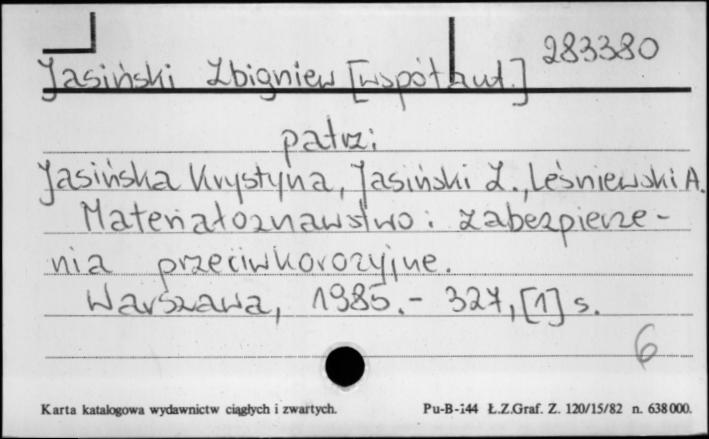 283380
Jasiński Zbigniew [współaut.]
patrz:
Jasińska Krystyna, Jasiński Z., Leśniewski A.
Materiałoznawstwo: zabezpiecze-
nia przeciwkorozyjne.
Warszawa, 1985.- 327, [1] s.
6
Karta katalogowa wydawnictw ciągłych i zwartych. Pu-B-144 Ł.Z.Graf. Z. 120/15/82 n. 638000.